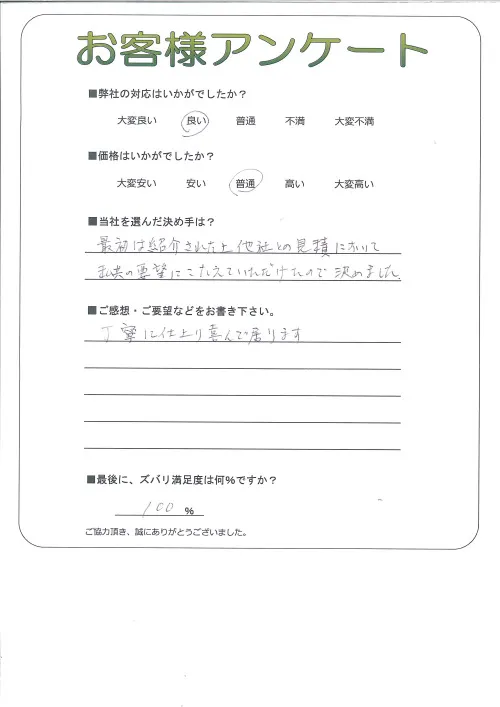 お客様アンケート
■弊社の対応はいかがでしたか？
大変良い 良い 普通 不満 大変不満
■価格はいかがでしたか？
大変安い 安い 普通 高い 大変高い
■当社を選んだ決め手は？
最初は紹介された上他社との見積において
私共の要望にこたえていただけたので決めました.
■ご感想・ご要望などをお書き下さい。
丁寧に仕上り喜んで居ります
■最後に、ズバリ満足度は何%ですか？
100 %
ご協力頂き、誠にありがとうございました。